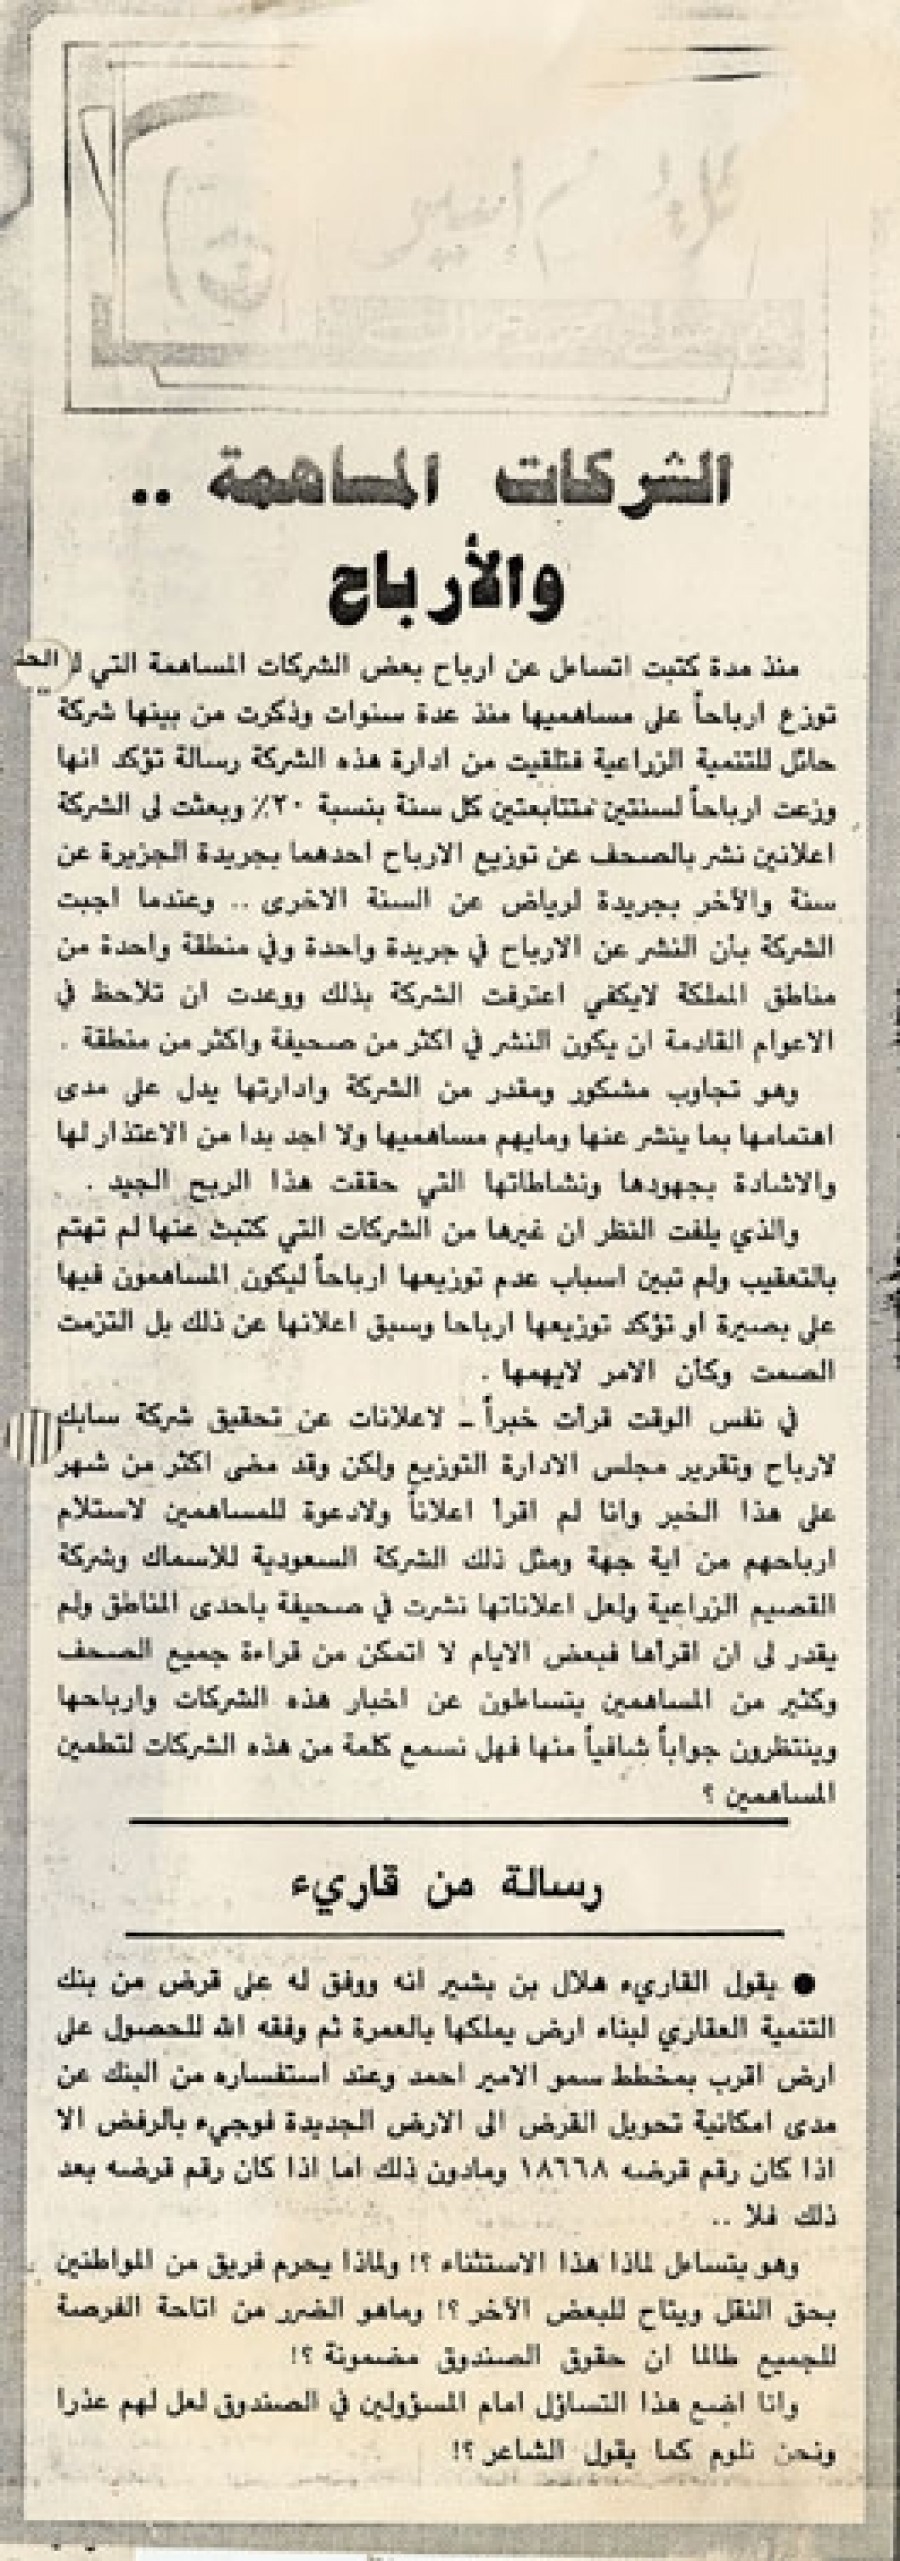 الشركات المساهمة ..
والأرباح
منذ مدة كتبت اتساءل عن ارباح بعض الشركات المساهمة التي لا
توزع ارباحاً على مساهميها منذ عدة سنوات وذكرت من بينها شركة
حائل للتنمية الزراعية فتلقيت من ادارة هذه الشركة رسالة تؤكد انها
وزعت ارباحاً لسنتين متتابعتين كل سنة بنسبة ٢٠٪ وبعثت لى الشركة
اعلانين نشر بالصحف عن توزيع الارباح احدهما بجريدة الجزيرة عن
سنة والآخر بجريدة لرياض عن السنة الاخرى .. وعندما اجبت
الشركة بأن النشر عن الارباح في جريدة واحدة وفي منطقة واحدة من
مناطق المملكة لايكفي اعترفت الشركة بذلك ووعدت ان تلاحظ في
الاعوام القادمة ان يكون النشر في اكثر من صحيفة واكثر من منطقة .
وهو تجاوب مشكور ومقدر من الشركة وادارتها يدل على مدى
اهتمامها بما ينشر عنها ومايهم مساهميها ولا اجد بدا من الاعتذار لها
والاشادة بجهودها ونشاطاتها التي حققت هذا الربح الجيد .
والذي يلفت النظر ان غيرها من الشركات التي كتبت عنها لم تهتم
بالتعقيب ولم تبين اسباب عدم توزيعها ارباحاً ليكون المساهمون فيها
على بصيرة او تؤكد توزيعها ارباحا وسبق اعلانها عن ذلك بل التزمت
الصمت وكأن الامر لايهمها .
في نفس الوقت قرأت خبراً ـ لاعلانات عن تحقيق شركة سابك
لارباح وتقرير مجلس الادارة التوزيع ولكن وقد مضى اكثر من شهر
على هذا الخبر وانا لم اقرأ اعلاناً ولادعوة للمساهمين لاستلام
ارباحهم من اية جهة ومثل ذلك الشركة السعودية للاسماك وشركة
القصيم الزراعية ولعل اعلاناتها نشرت في صحيفة باحدى المناطق ولم
يقدر لى ان اقرأها فبعض الايام لا اتمكن من قراءة جميع الصحف
وكثير من المساهمين يتساءلون عن اخبار هذه الشركات وارباحها
وينتظرون جواباً شافياً منها فهل نسمع كلمة من هذه الشركات لتطمين
المساهمين ؟
رسالة من قاريء
● يقول القاريء هلال بن بشير انه ووفق له على قرض من بنك
التنمية العقاري لبناء ارض يملكها بالعمرة ثم وفقه الله للحصول على
ارض اقرب بمخطط سمو الامير احمد وعند استفساره من البنك عن
مدى امكانية تحويل القرض الى الارض الجديدة فوجيء بالرفض الا
اذا كان رقم قرضه ١٨٦٦٨ ومادون ذلك اما اذا كان رقم قرضه بعد
ذلك فلا ..
وهو يتساءل لماذا هذا الاستثناء ؟! ولماذا يحرم فريق من المواطنين
بحق النقل ويتاح للبعض الآخر ؟! وماهو الضرر من اتاحة الفرصة
للجميع طالما ان حقوق الصندوق مضمونة ؟!
وانا اضع هذا التساؤل امام المسؤولين في الصندوق لعل لهم عذرا
ونحن نلوم كما يقول الشاعر ؟!